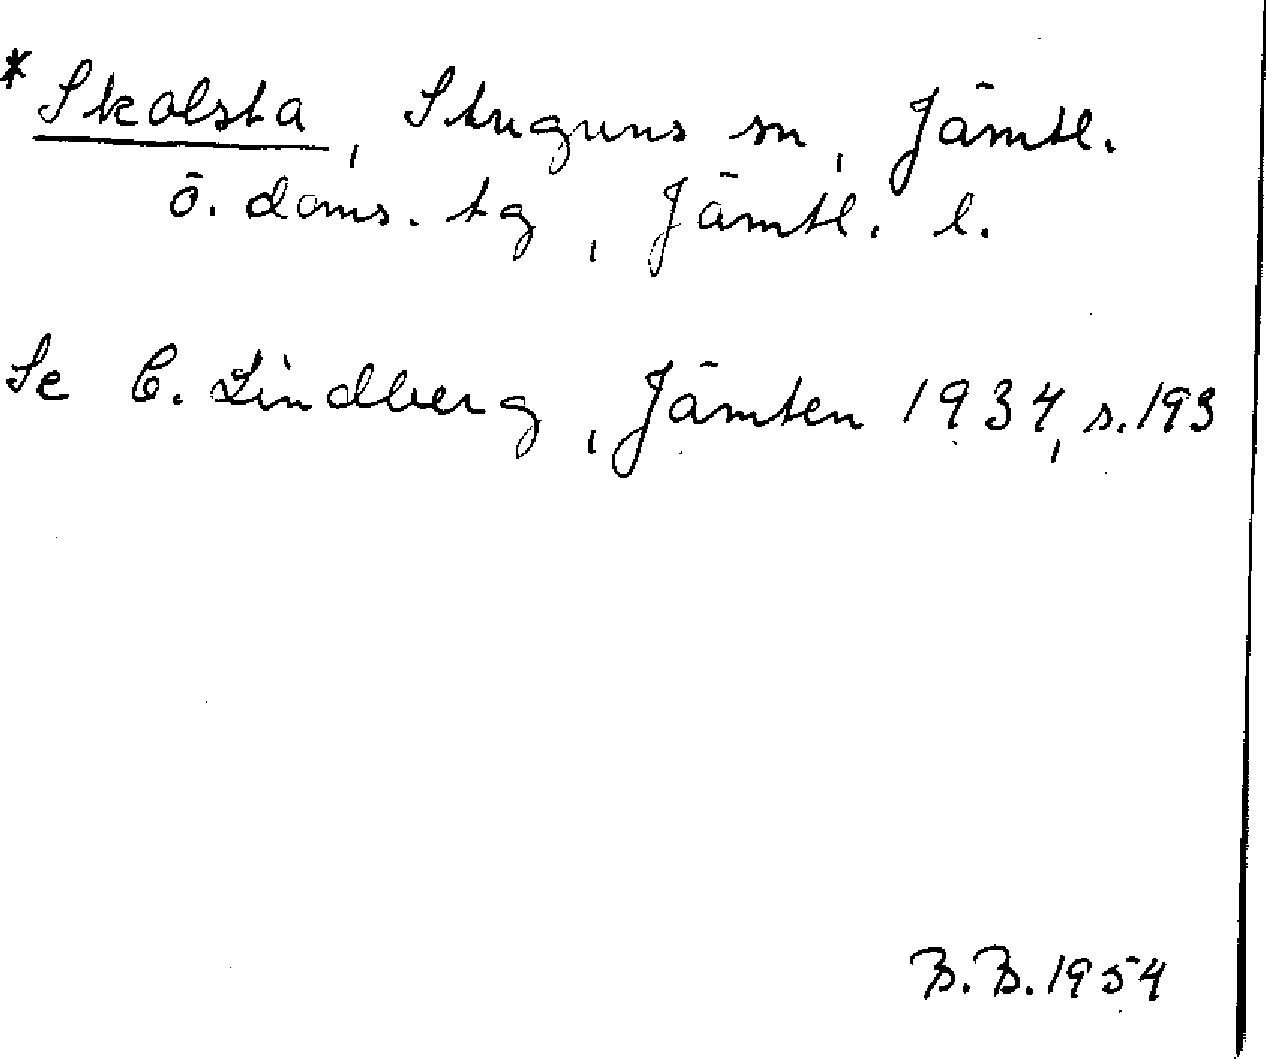 *Skolsta, Stuguns sn, Jämtl.
ö. doms. tg, Jämtl. l.
Se C. Lindberg, Jämten 1934, s. 193
B.B. 1954